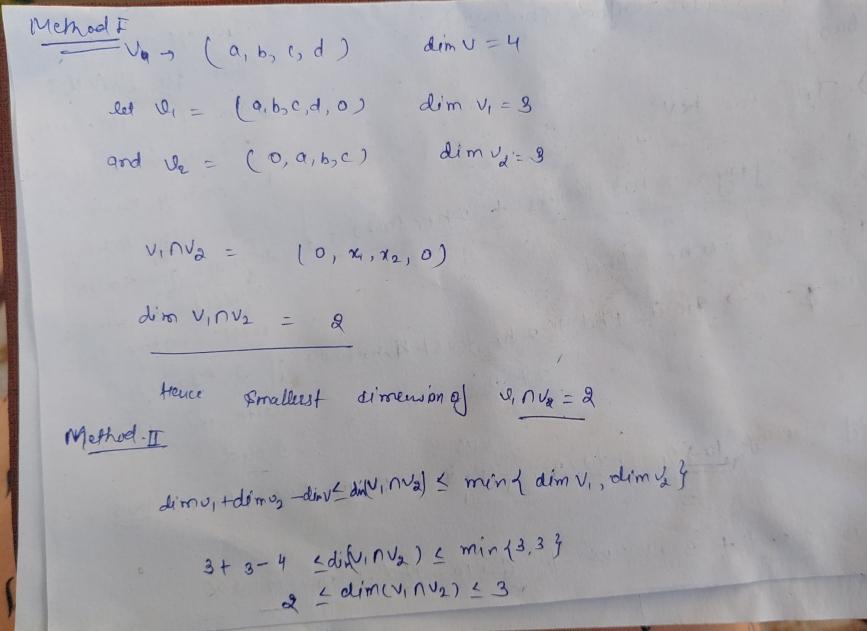 Method I
V₄ → (a, b, c, d) dim V = 4
let V₁ = (a, b, c, d, 0) dim V₁ = 3
and V₂ = (0, a, b, c) dim V₂ = 3
V₁∩V₂ = (0, x₁, x₂, 0)
dim V₁∩V₂ = 2
Hence smallest dimension of V₁∩V₂ = 2
Method-II
dim V₁ + dim V₂ - dim V ≤ dim(V₁∩V₂) ≤ min{ dim V₁, dim V₂ }
3 + 3 - 4 ≤ dim(V₁∩V₂) ≤ min{3, 3}
2 ≤ dim(V₁∩V₂) ≤ 3